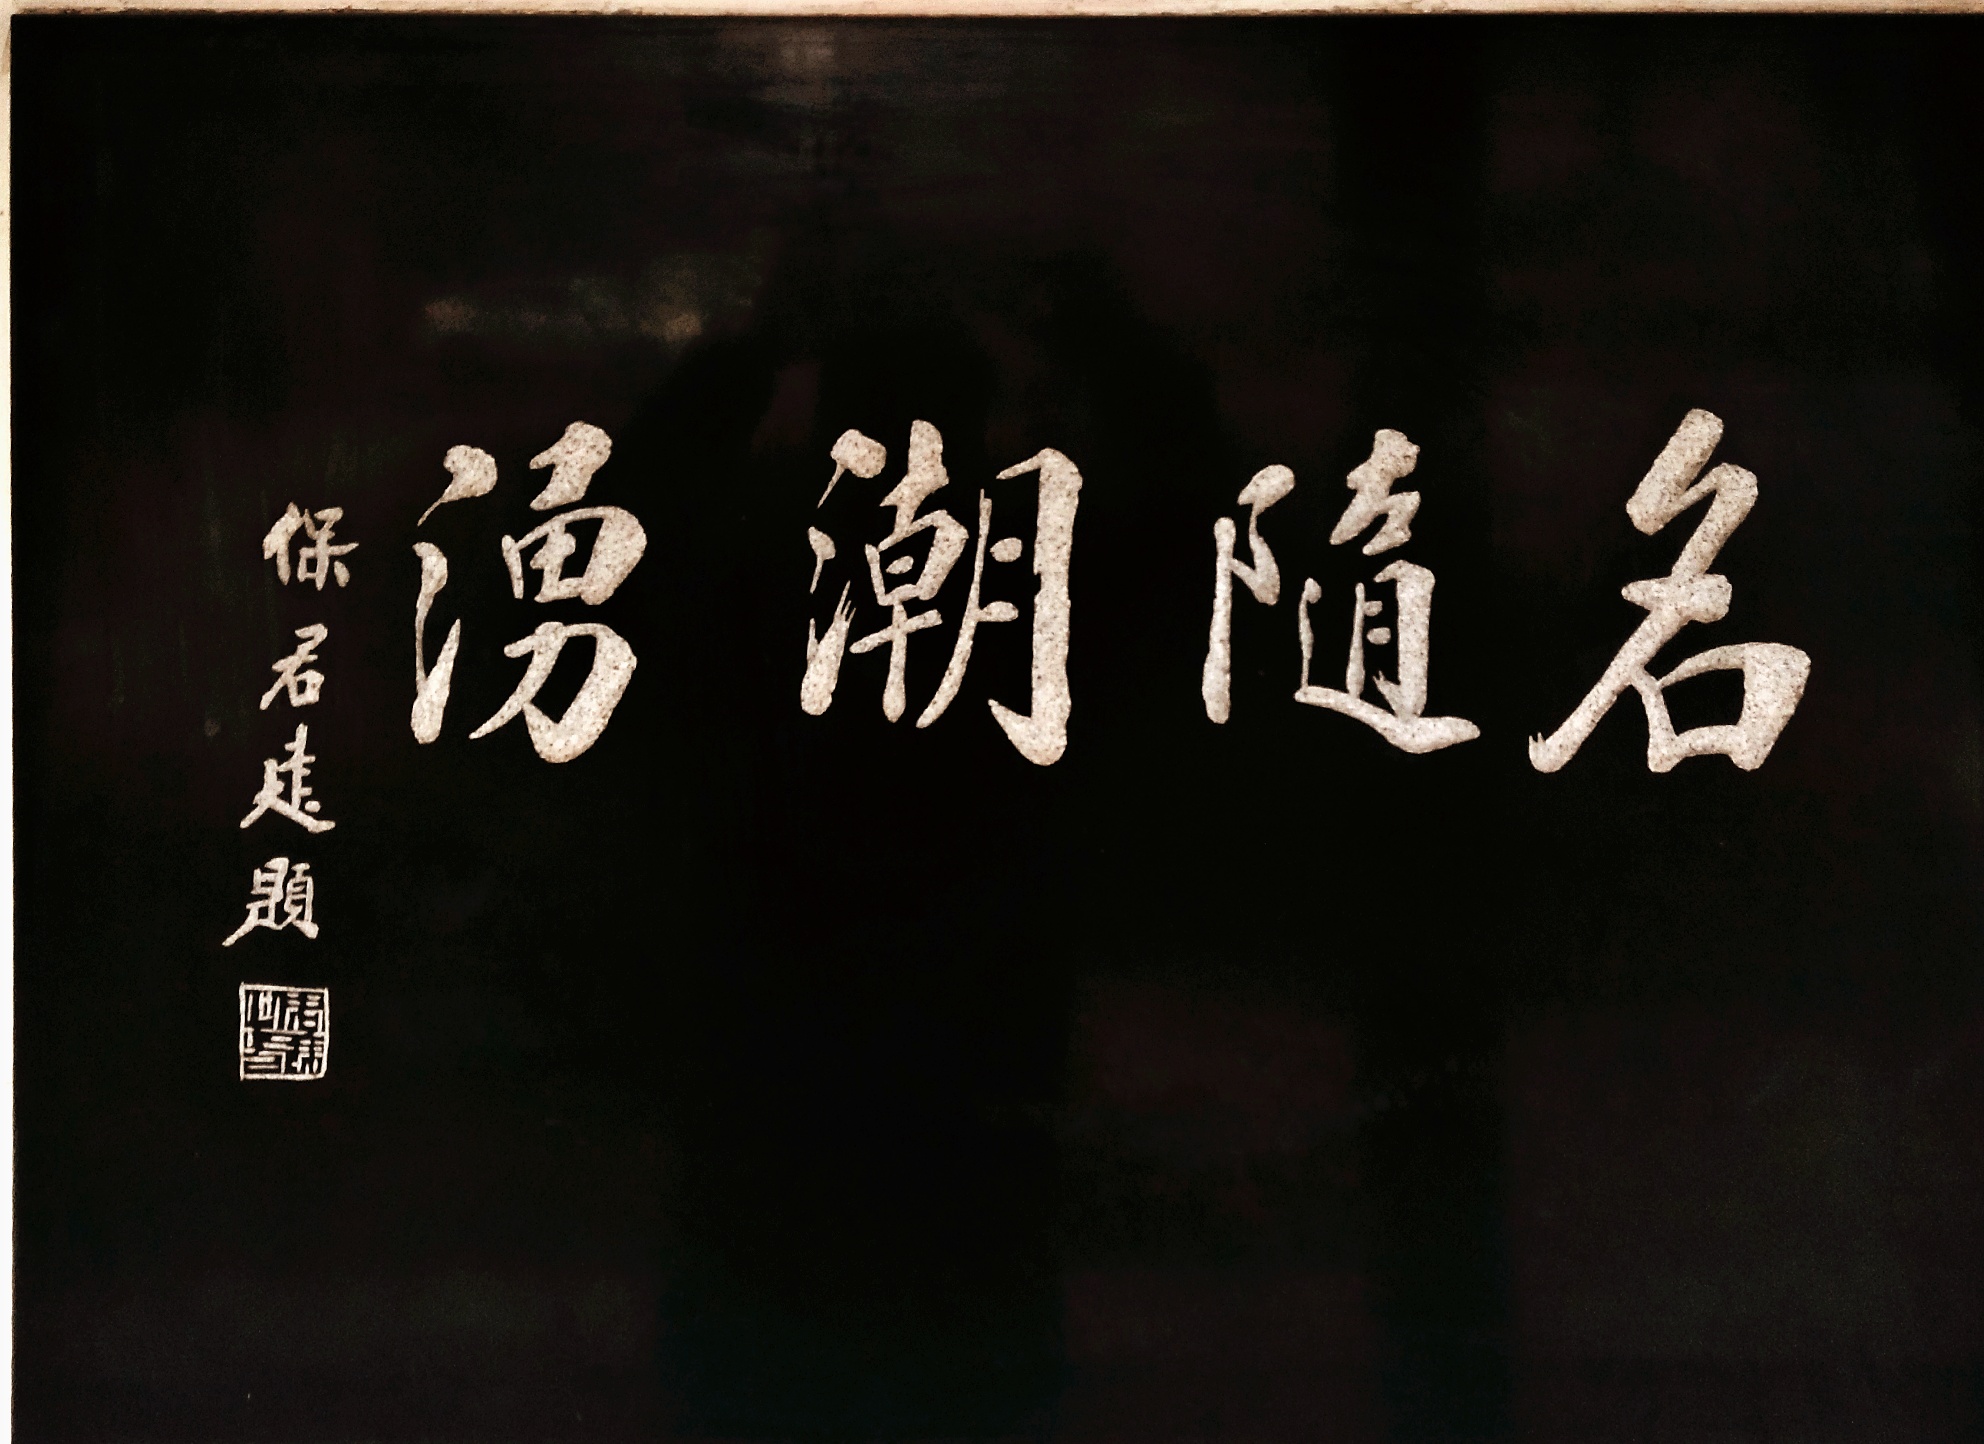 名隨潮湧
保君建題